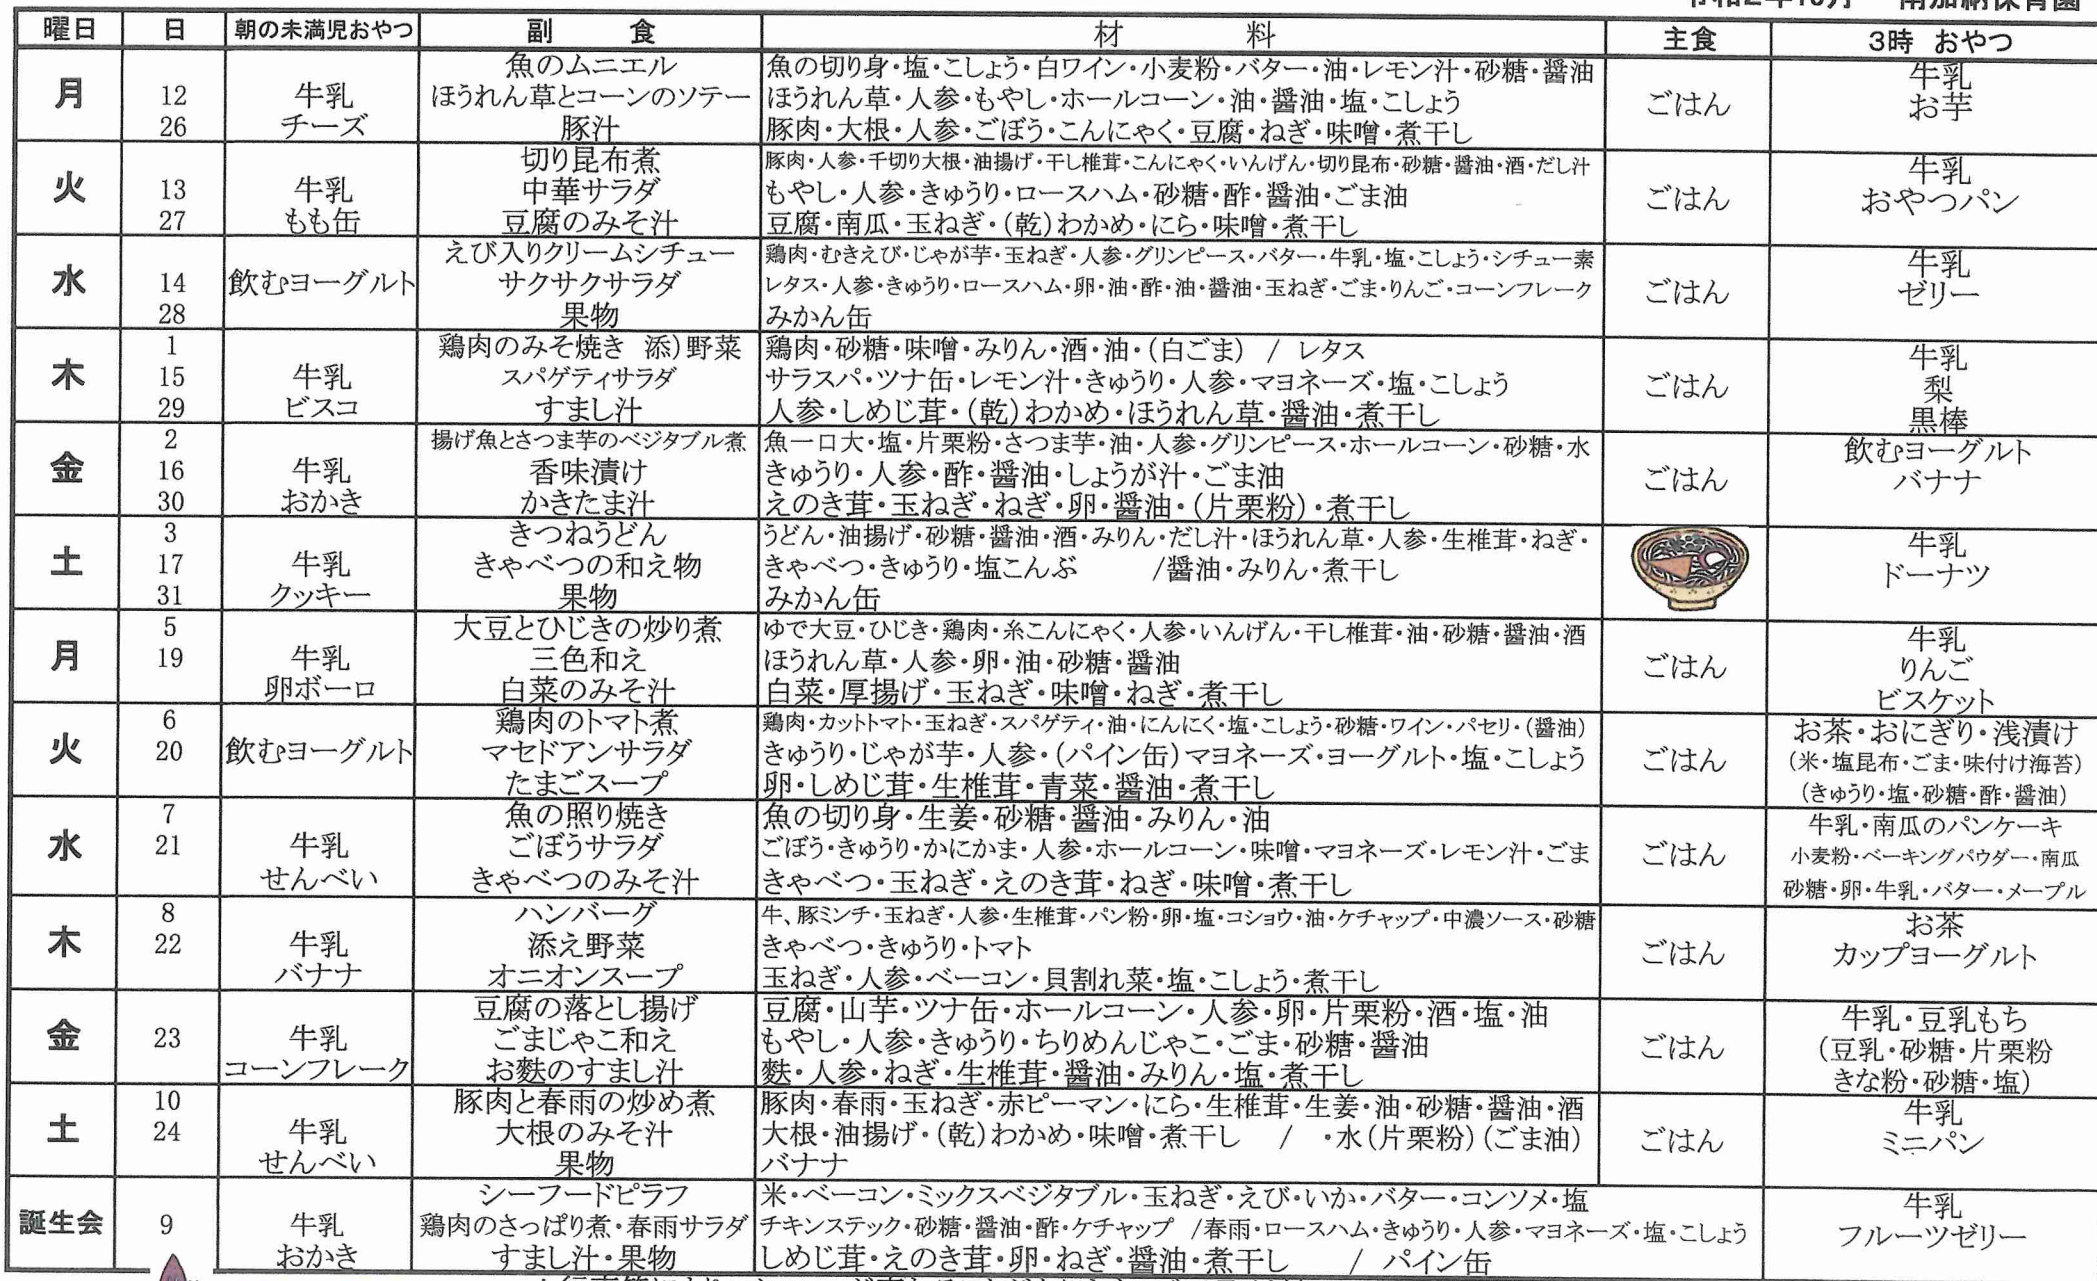 曜日 日 朝の未満児おやつ 副 食 材 料 主食 3時 おやつ
月
12
26
牛乳
チーズ
魚のムニエル
ほうれん草とコーンのソテー
豚汁
魚の切り身・塩・こしょう・白ワイン・小麦粉・バター・油・レモン汁・砂糖・醤油
ほうれん草・人参・もやし・ホールコーン・油・醤油・塩・こしょう
豚肉・大根・人参・ごぼう・こんにゃく・豆腐・ねぎ・味噌・煮干し
ごはん
牛乳
お芋
火
13
27
牛乳
もも缶
切り昆布煮
中華サラダ
豆腐のみそ汁
豚肉・人参・千切り大根・油揚げ・干し椎茸・こんにゃく・いんげん・切り昆布・砂糖・醤油・酒・だし汁
もやし・人参・きゅうり・ロースハム・砂糖・酢・醤油・ごま油
豆腐・南瓜・玉ねぎ・(乾)わかめ・にら・味噌・煮干し
ごはん
牛乳
おやつパン
水
14
28
飲むヨーグルト
えび入りクリームシチュー
サクサクサラダ
果物
鶏肉・むきえび・じゃが芋・玉ねぎ・人参・グリンピース・バター・牛乳・塩・こしょう・シチュー素
レタス・人参・きゅうり・ロースハム・卵・油・酢・油・醤油・玉ねぎ・ごま・りんご・コーンフレーク
みかん缶
ごはん
牛乳
ゼリー
木
1
15
29
牛乳
ビスコ
鶏肉のみそ焼き 添)野菜
スパゲティサラダ
すまし汁
鶏肉・砂糖・味噌・みりん・酒・油・(白ごま) / レタス
サラスパ・ツナ缶・レモン汁・きゅうり・人参・マヨネーズ・塩・こしょう
人参・しめじ茸・(乾)わかめ・ほうれん草・醤油・煮干し
ごはん
牛乳
梨
黒棒
金
2
16
30
牛乳
おかき
揚げ魚とさつま芋のベジタブル煮
香味漬け
かきたま汁
魚一口大・塩・片栗粉・さつま芋・油・人参・グリンピース・ホールコーン・砂糖・水
きゅうり・人参・酢・醤油・しょうが汁・ごま油
えのき茸・玉ねぎ・ねぎ・卵・醤油・(片栗粉)・煮干し
ごはん
飲むヨーグルト
バナナ
土
3
17
31
牛乳
クッキー
きつねうどん
きゃべつの和え物
果物
うどん・油揚げ・砂糖・醤油・酒・みりん・だし汁・ほうれん草・人参・生椎茸・ねぎ・
きゃべつ・きゅうり・塩こんぶ /醤油・みりん・煮干し
みかん缶
牛乳
ドーナツ
月
5
19
牛乳
卵ボーロ
大豆とひじきの炒り煮
三色和え
白菜のみそ汁
ゆで大豆・ひじき・鶏肉・糸こんにゃく・人参・いんげん・干し椎茸・油・砂糖・醤油・酒
ほうれん草・人参・卵・油・砂糖・醤油
白菜・厚揚げ・玉ねぎ・味噌・ねぎ・煮干し
ごはん
牛乳
りんご
ビスケット
火
6
20
飲むヨーグルト
鶏肉のトマト煮
マセドアンサラダ
たまごスープ
鶏肉・カットトマト・玉ねぎ・スパゲティ・油・にんにく・塩・こしょう・砂糖・ワイン・パセリ・(醤油)
きゅうり・じゃが芋・人参・(パイン缶)マヨネーズ・ヨーグルト・塩・こしょう
卵・しめじ茸・生椎茸・青菜・醤油・煮干し
ごはん
お茶・おにぎり・浅漬け
(米・塩昆布・ごま・味付け海苔)
(きゅうり・塩・砂糖・酢・醤油)
水
7
21
牛乳
せんべい
魚の照り焼き
ごぼうサラダ
きゃべつのみそ汁
魚の切り身・生姜・砂糖・醤油・みりん・油
ごぼう・きゅうり・かにかま・人参・ホールコーン・味噌・マヨネーズ・レモン汁・ごま
きゃべつ・玉ねぎ・えのき茸・ねぎ・味噌・煮干し
ごはん
牛乳・南瓜のパンケーキ
小麦粉・ベーキングパウダー・南瓜
砂糖・卵・牛乳・バター・メープル
木
8
22
牛乳
バナナ
ハンバーグ
添え野菜
オニオンスープ
牛、豚ミンチ・玉ねぎ・人参・生椎茸・パン粉・卵・塩・コショウ・油・ケチャップ・中濃ソース・砂糖
きゃべつ・きゅうり・トマト
玉ねぎ・人参・ベーコン・貝割れ菜・塩・こしょう・煮干し
ごはん
お茶
カップヨーグルト
金
23
牛乳
コーンフレーク
豆腐の落とし揚げ
ごまじゃこ和え
お麩のすまし汁
豆腐・山芋・ツナ缶・ホールコーン・人参・卵・片栗粉・酒・塩・油
もやし・人参・きゅうり・ちりめんじゃこ・ごま・砂糖・醤油
麩・人参・ねぎ・生椎茸・醤油・みりん・塩・煮干し
ごはん
牛乳・豆乳もち
(豆乳・砂糖・片栗粉
きな粉・砂糖・塩)
土
10
24
牛乳
せんべい
豚肉と春雨の炒め煮
大根のみそ汁
果物
豚肉・春雨・玉ねぎ・赤ピーマン・にら・生椎茸・生姜・油・砂糖・醤油・酒
大根・油揚げ・(乾)わかめ・味噌・煮干し / ・水(片栗粉)(ごま油)
バナナ
ごはん
牛乳
ミニパン
誕生会
9
牛乳
おかき
シーフードピラフ
鶏肉のさっぱり煮・春雨サラダ
すまし汁・果物
米・ベーコン・ミックスベジタブル・玉ねぎ・えび・いか・バター・コンソメ・塩
チキンステック・砂糖・醤油・酢・ケチャップ /春雨・ロースハム・きゅうり・人参・マヨネーズ・塩・こしょう
しめじ茸・えのき茸・卵・ねぎ・醤油・煮干し / パイン缶
牛乳
フルーツゼリー